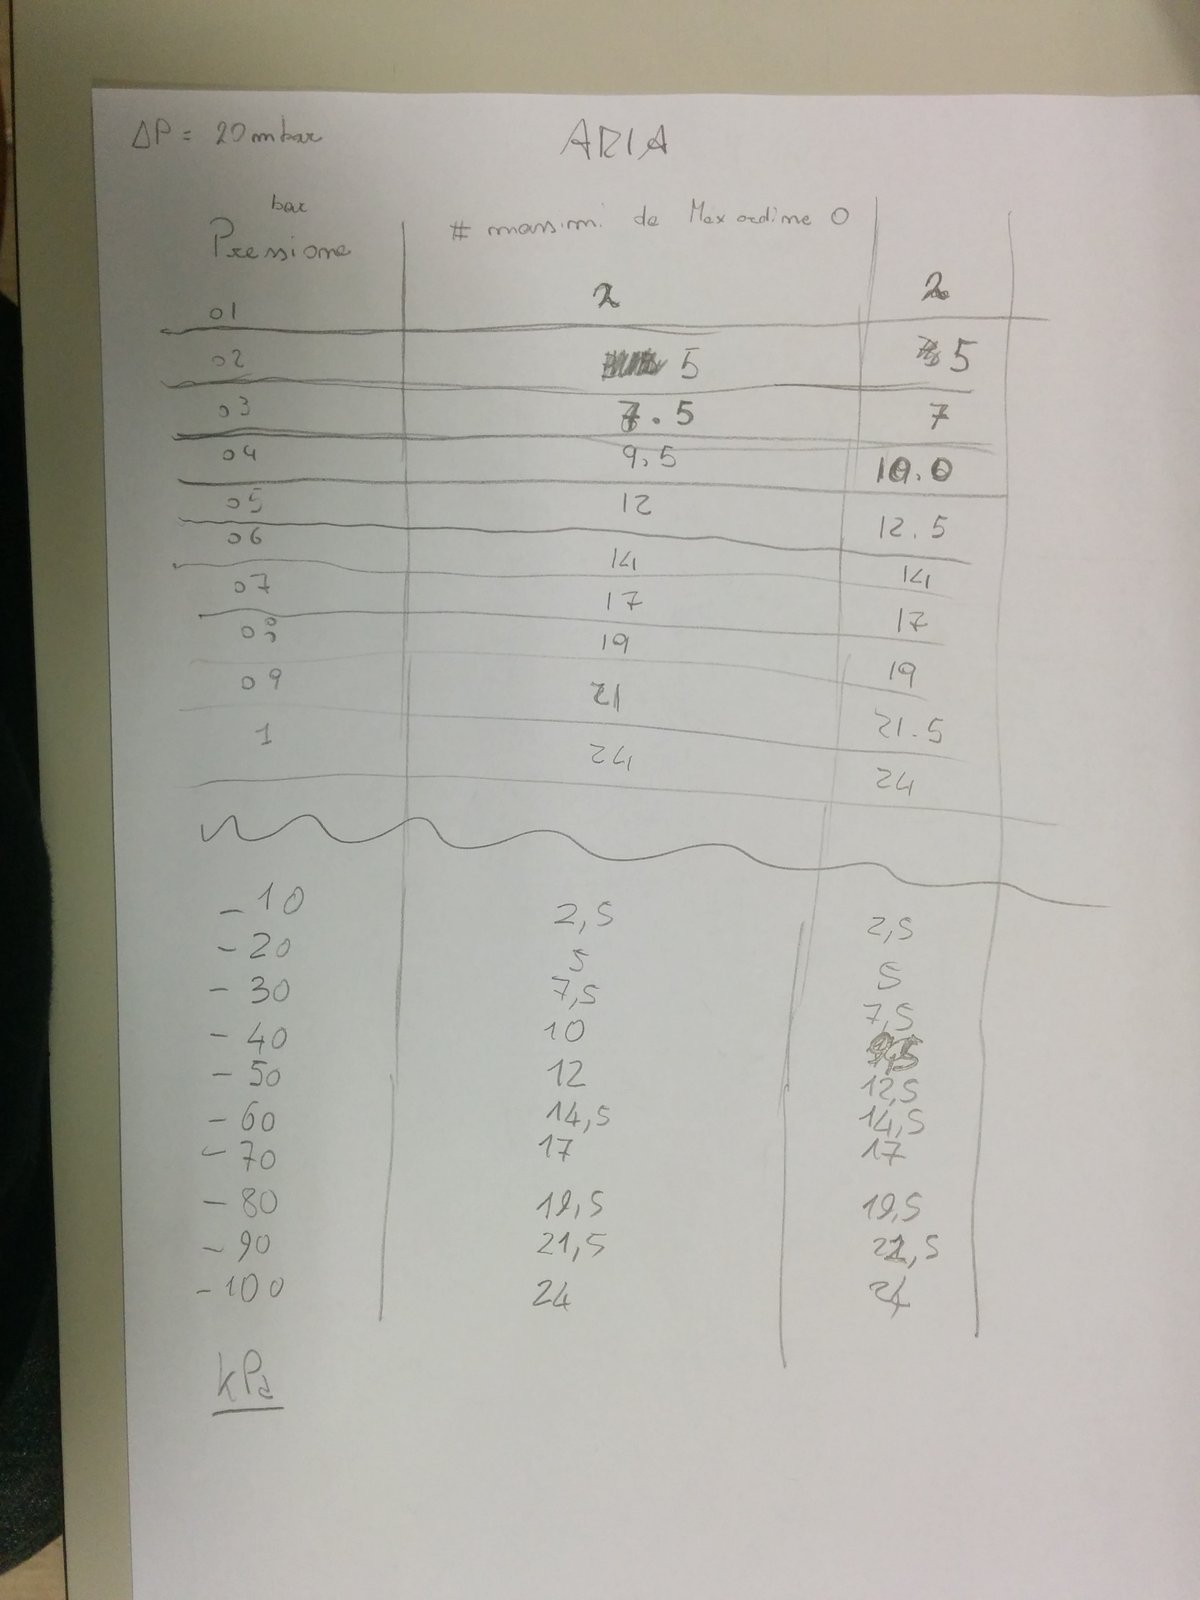 ΔP = 20 mbar
ARIA
bar
Pressione
# massimi da Max ordine 0
01 2 2
02 5 5
03 7.5 7
04 9.5 10.0
05 12 12.5
06 14 14
07 17 17
08 19 19
09 21 21.5
1 24 24
-10 2,5 2,5
-20 5 5
-30 7,5 7,5
-40 10 9,5
-50 12 12,5
-60 14,5 14,5
-70 17 17
-80 19,5 19,5
-90 21,5 21,5
-100 24 24
kPa